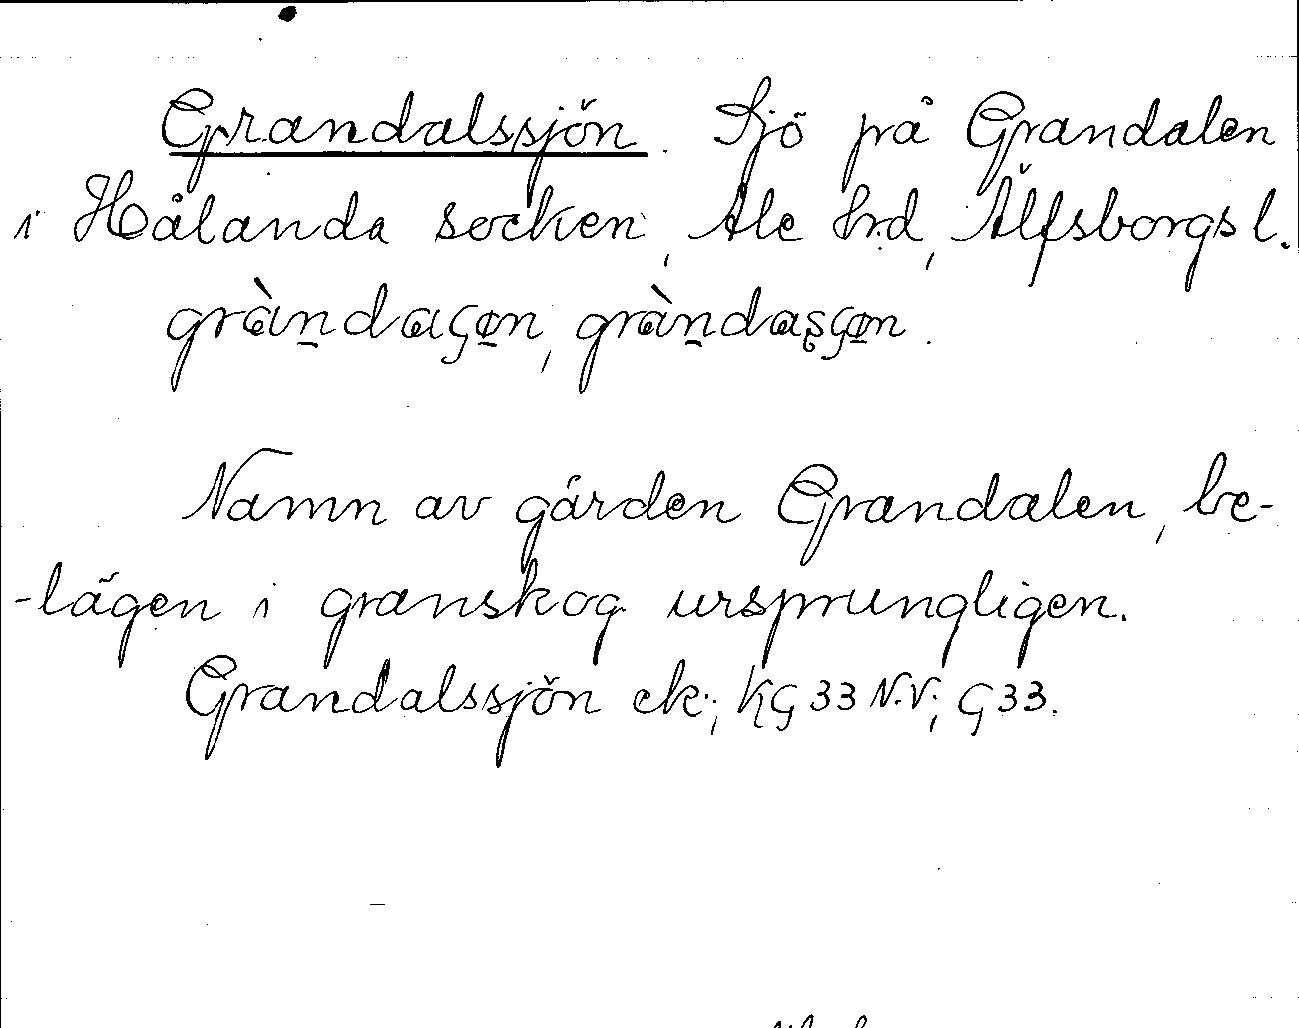 Grandalssjön. Sjö på Grandalen
i Hålanda socken, Ale hrd, Älfsborgs l.
gràndaçøn, gràndasçøn.
Namn av gården Grandalen, be-
-lägen i granskog ursprungligen.
Grandalssjön ek.; KG 33 N.V.; G 33.